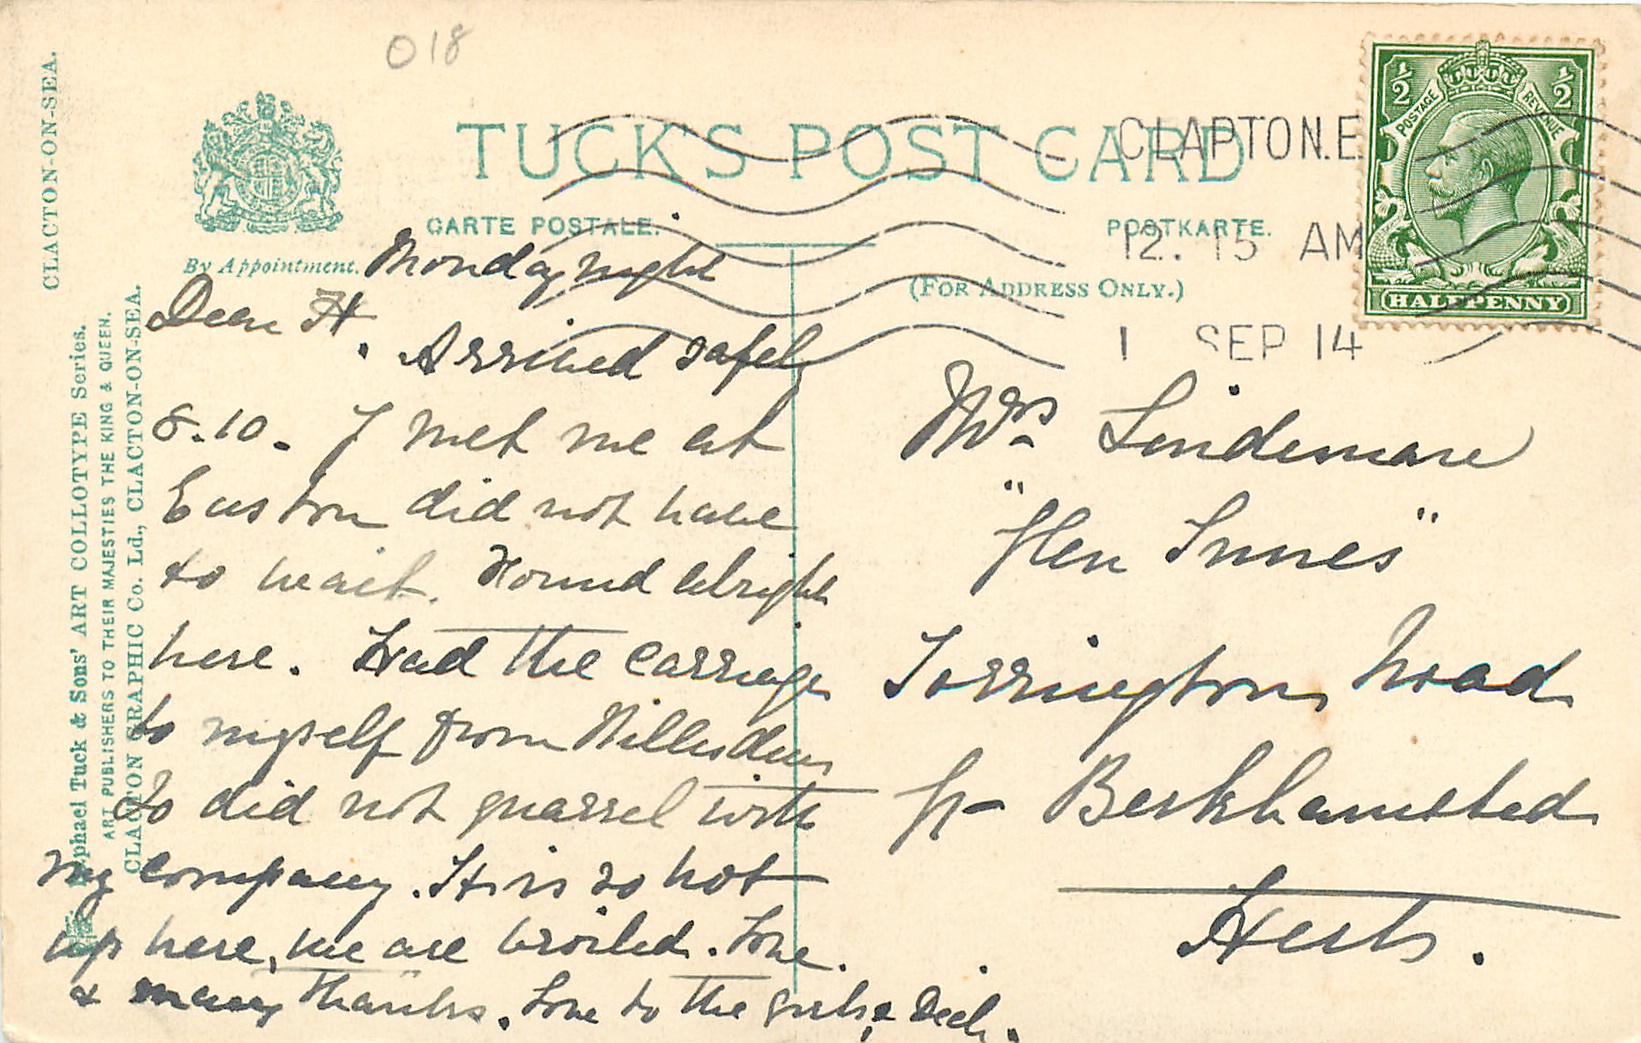 018
TUCK'S POST CARD
CARTE POSTALE.
POSTKARTE.
By Appointment.
(FOR ADDRESS ONLY.)
CLAPTON.E
12. 15 AM
1 SEP 14
1/2 1/2
POSTAGE REVENUE
HALFPENNY
CLACTON-ON-SEA.
Raphael Tuck & Sons' ART COLLOTYPE Series.
ART PUBLISHERS TO THEIR MAJESTIES THE KING & QUEEN.
CLACTON GRAPHIC Co. Ld., CLACTON-ON-SEA.
Monday night
Dear H.
Arrived safely
8.10. J met me at
Euston did not have
to wait. Found alright
here. Had the carriage
to myself from Willesden
So did not quarrel with
my company. It is so hot
up here, we are broiled. Love.
& many thanks. Love to the girls & Dick.
Mrs Lindemare
"Glen Innes"
Torrington Road
Gt Berkhamsted
Herts.